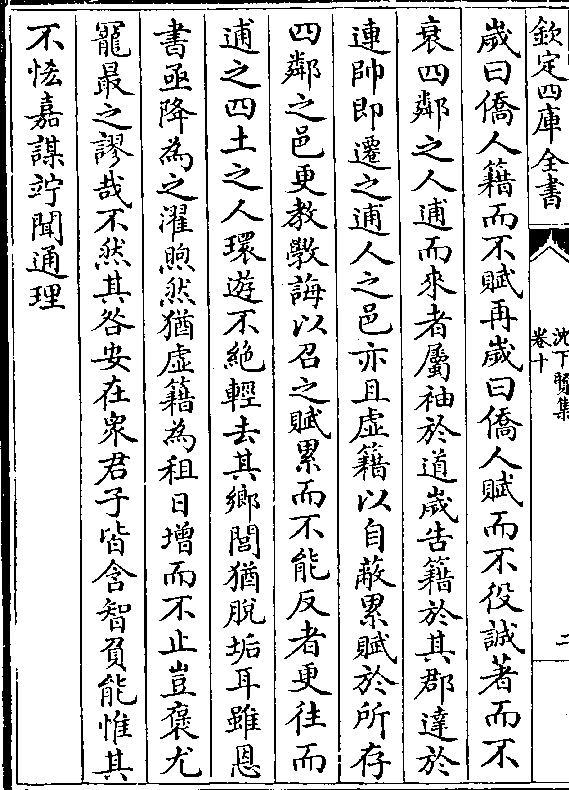 欽定四庫全書
沈下賢集
卷十
二
歲曰僑人籍而不賦再歲曰僑人賦而不役誠著而不
衰四鄰之人逋而來者屬袖於道歲告籍於其郡達於
連帥即遷之逋人之邑亦且虛籍以自蔽累賦於所存
四鄰之邑更教斆誨以召之賦累而不能反者更往而
逋之四土之人環遊不絶輕去其鄉閭猶脫垢耳雖恩
書亟降為之濯煦然猶虛籍為租日增而不止豈褒尤
寵最之謬哉不然其咎安在衆君子皆含智負能惟其
不恡嘉謀竚聞通理